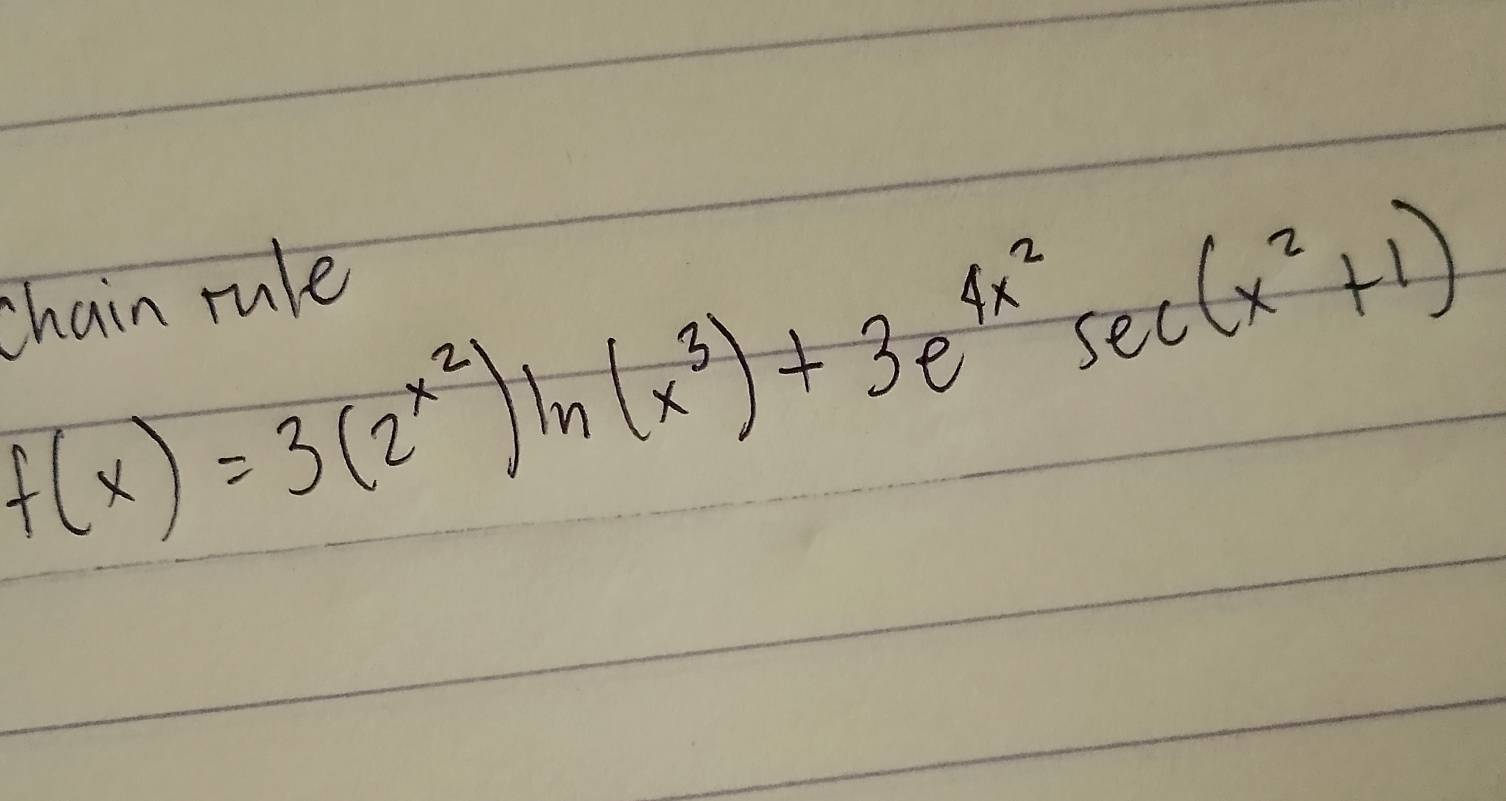 chain rule
f(x) = 3(2^{x^2}) ln(x^3) + 3e^{4x^2} sec(x^2 + 1)